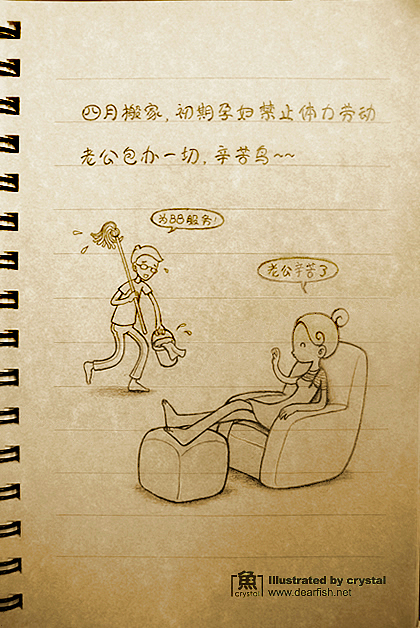 四月搬家，初期孕妇禁止体力劳动
老公包办一切，辛苦鸟~~
为BB服务！
老公辛苦了
魚
crystal
Illustrated by crystal
www.dearfish.net